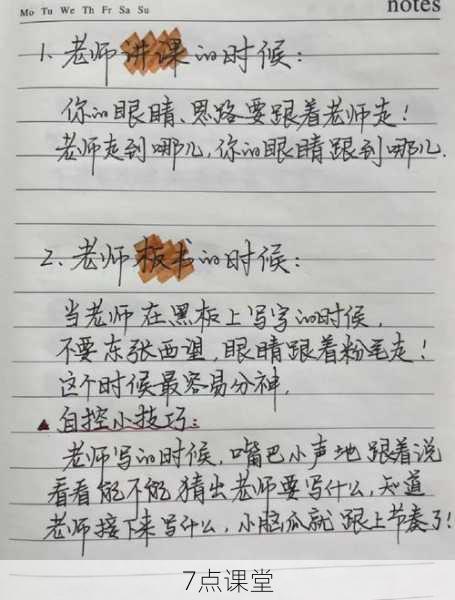 Mo Tu We Th Fr Sa Su
notes
1. 老师讲课的时候:
你的眼睛、思路要跟着老师走!
老师走到哪儿,你的眼睛跟到哪儿.
2. 老师板书的时候:
当老师在黑板上写字的时候,
不要东张西望,眼睛跟着粉笔走!
这个时候最容易分神,
▲ 自控小技巧:
老师写的时候,嘴巴小声地跟着说
看看能不能猜出老师要写什么,知道
老师接下来写什么,小脑瓜就跟上节奏了!
7点课堂